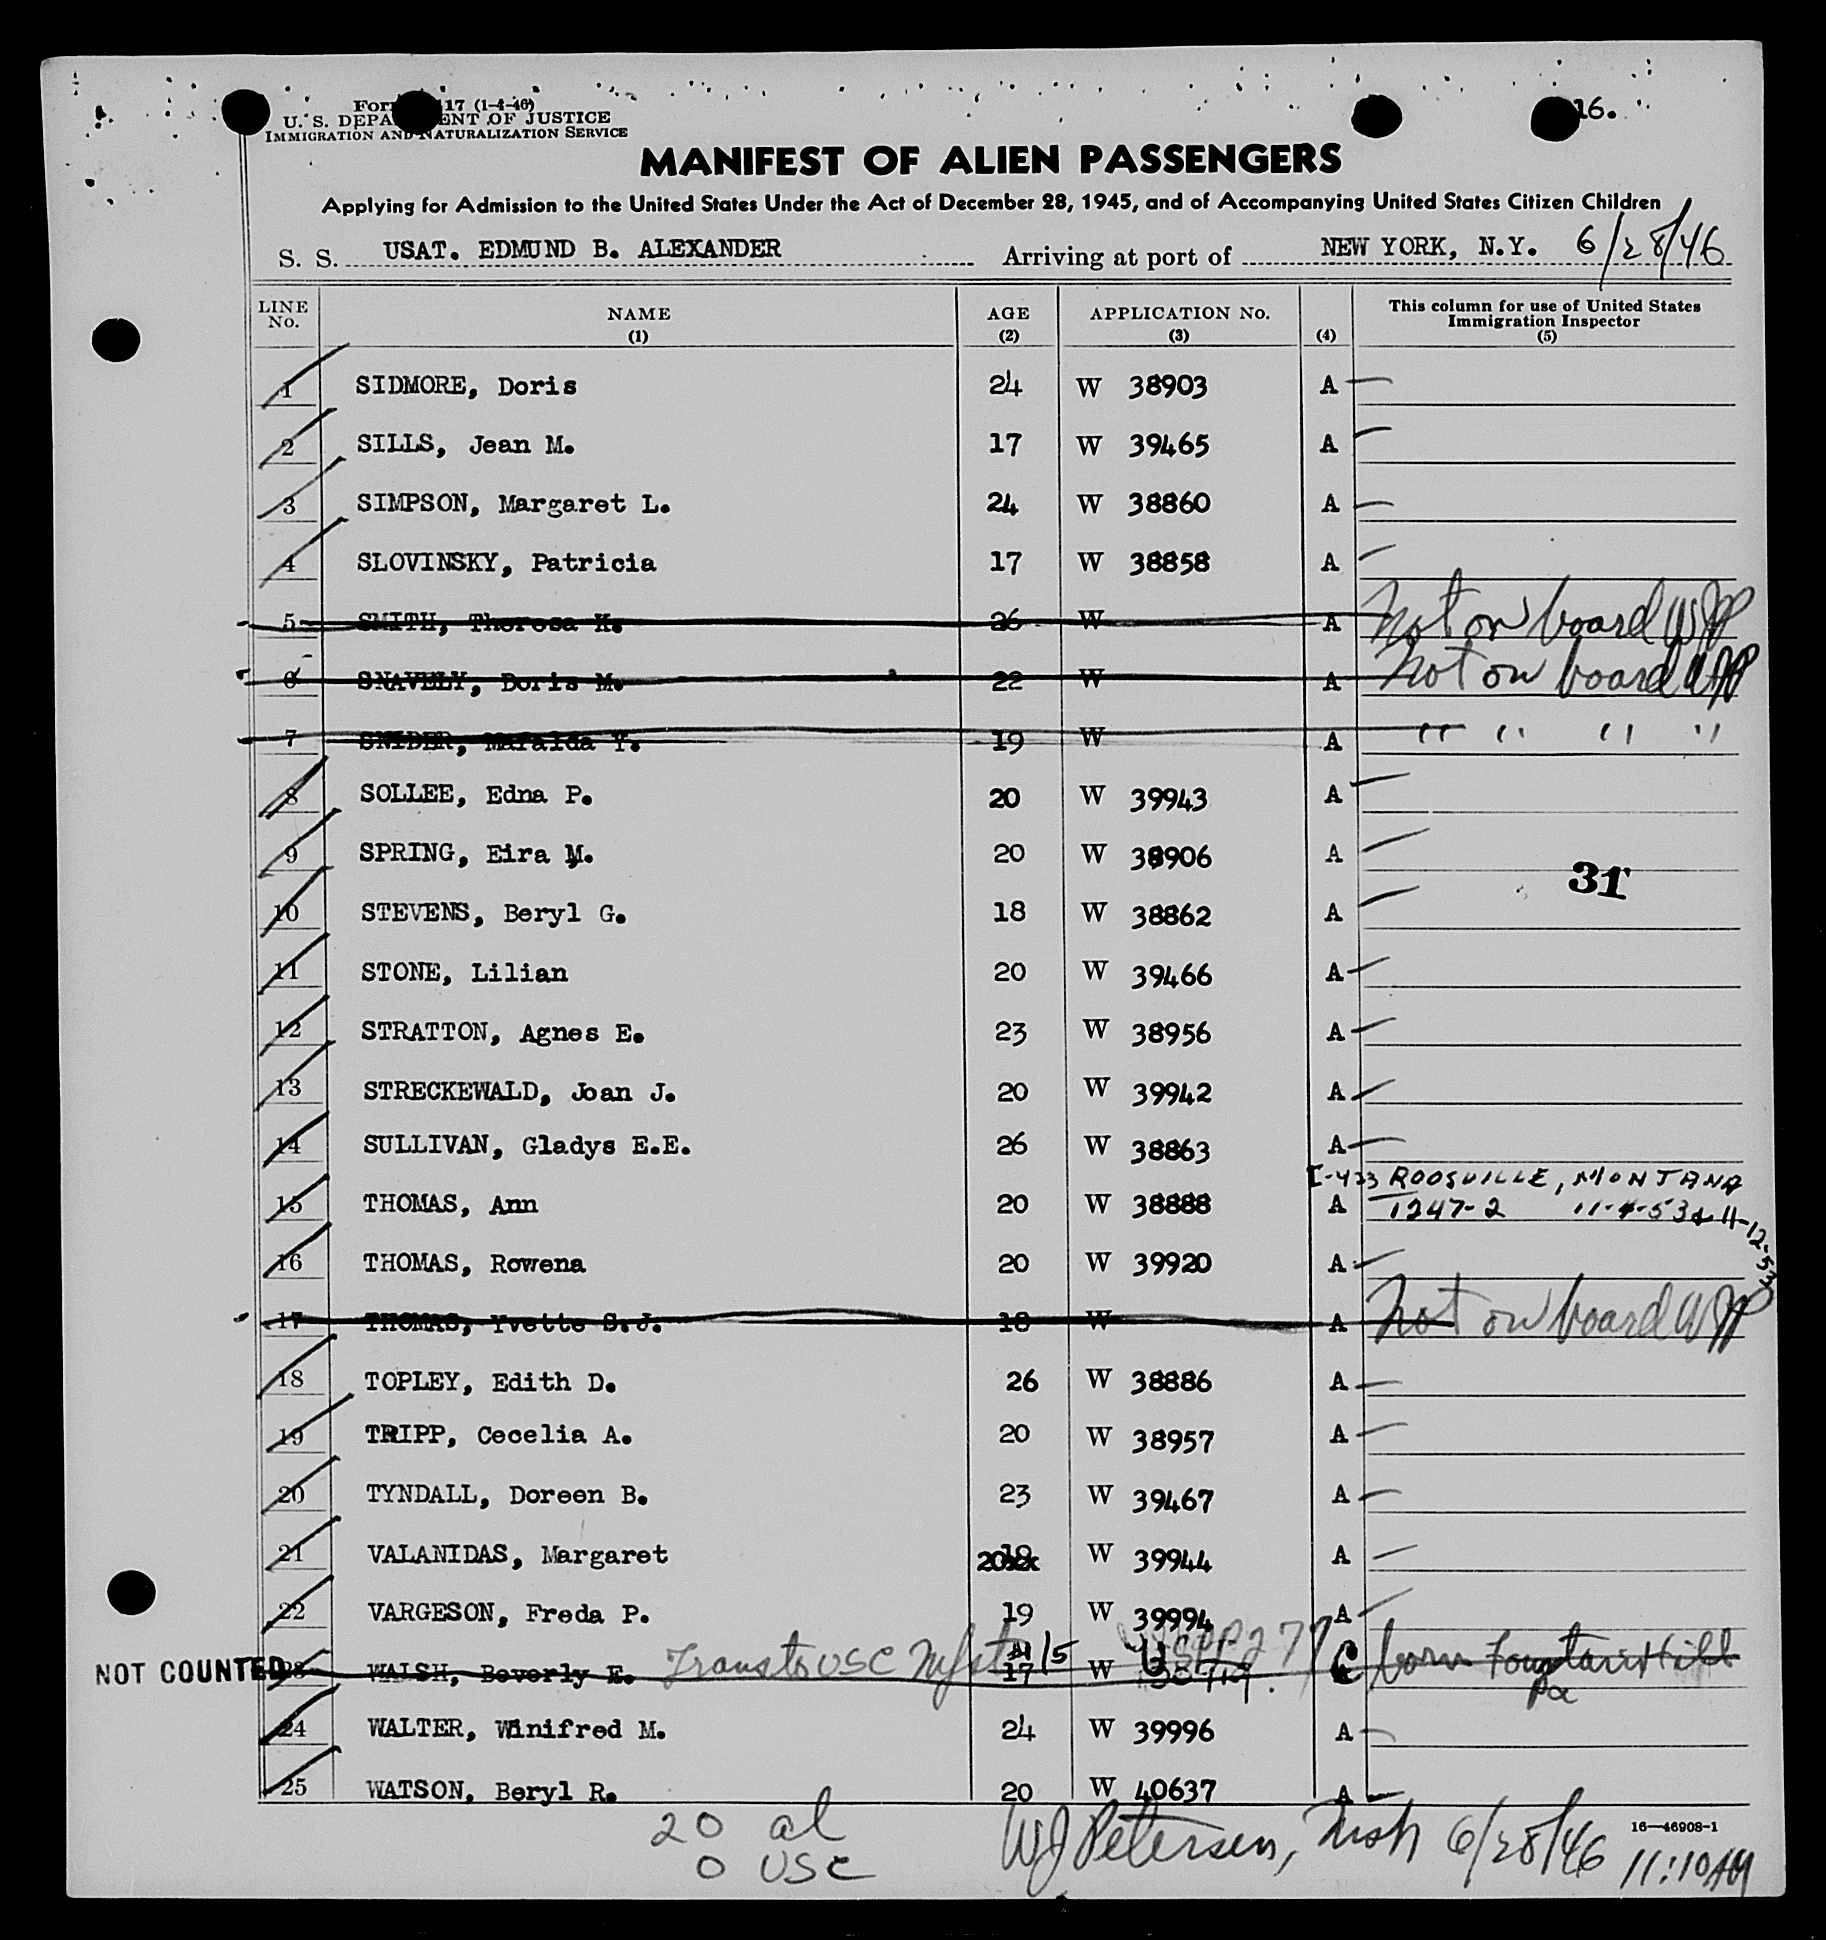 16.
U. S. DEPA ENT OF JUSTICE
IMMIGRATION AND NATURALIZATION SERVICE
MANIFEST OF ALIEN PASSENGERS
Applying for Admission to the United States Under the Act of December 28, 1945, and of Accompanying United States Citizen Children
S. S. USAT. EDMUND B. ALEXANDER Arriving at port of NEW YORK, N.Y. 6/28/46
LINE No. NAME (1) AGE (2) APPLICATION No. (3) (4) This column for use of United States Immigration Inspector (5)
1 SIDMORE, Doris 24 W 38903 A
2 SILLS, Jean M. 17 W 39465 A
3 SIMPSON, Margaret L. 24 W 38860 A
4 SLOVINSKY, Patricia 17 W 38858 A
5 SMITH, Theresa K. 26 W A Not on board WJP
6 SNAVELY, Doris M. 22 W A Not on board WJP
7 SNIDER, Mafalda Y. 19 W A " " " "
8 SOLLEE, Edna P. 20 W 39943 A
9 SPRING, Eira M. 20 W 38906 A
31
10 STEVENS, Beryl G. 18 W 38862 A
11 STONE, Lilian 20 W 39466 A
12 STRATTON, Agnes E. 23 W 38956 A
13 STRECKEWALD, Joan J. 20 W 39942 A
14 SULLIVAN, Gladys E.E. 26 W 38863 A
I-433 ROOSVILLE, MONTANA
15 THOMAS, Ann 20 W 38888 A 1247-2 11-4-53 & 11-12-53
16 THOMAS, Rowena 20 W 39920 A
17 THOMAS, Yvette S.J. 18 W A Not on board WJP
18 TOPLEY, Edith D. 26 W 38886 A
19 TRIPP, Cecelia A. 20 W 38957 A
20 TYNDALL, Doreen B. 23 W 39467 A
21 VALANIDAS, Margaret 19 W 39944 A
22 VARGESON, Freda P. 19 W 39994 A
NOT COUNTED 23 WALSH, Beverly E. Trans to USC Mfst 17 W C born Fountain Hill Pa
24 WALTER, Winifred M. 24 W 39996 A
25 WATSON, Beryl R. 20 W 40637 A
20 al
0 USC
WJ Petersen, Insp 6/28/46 11:10AM
16—46908-1